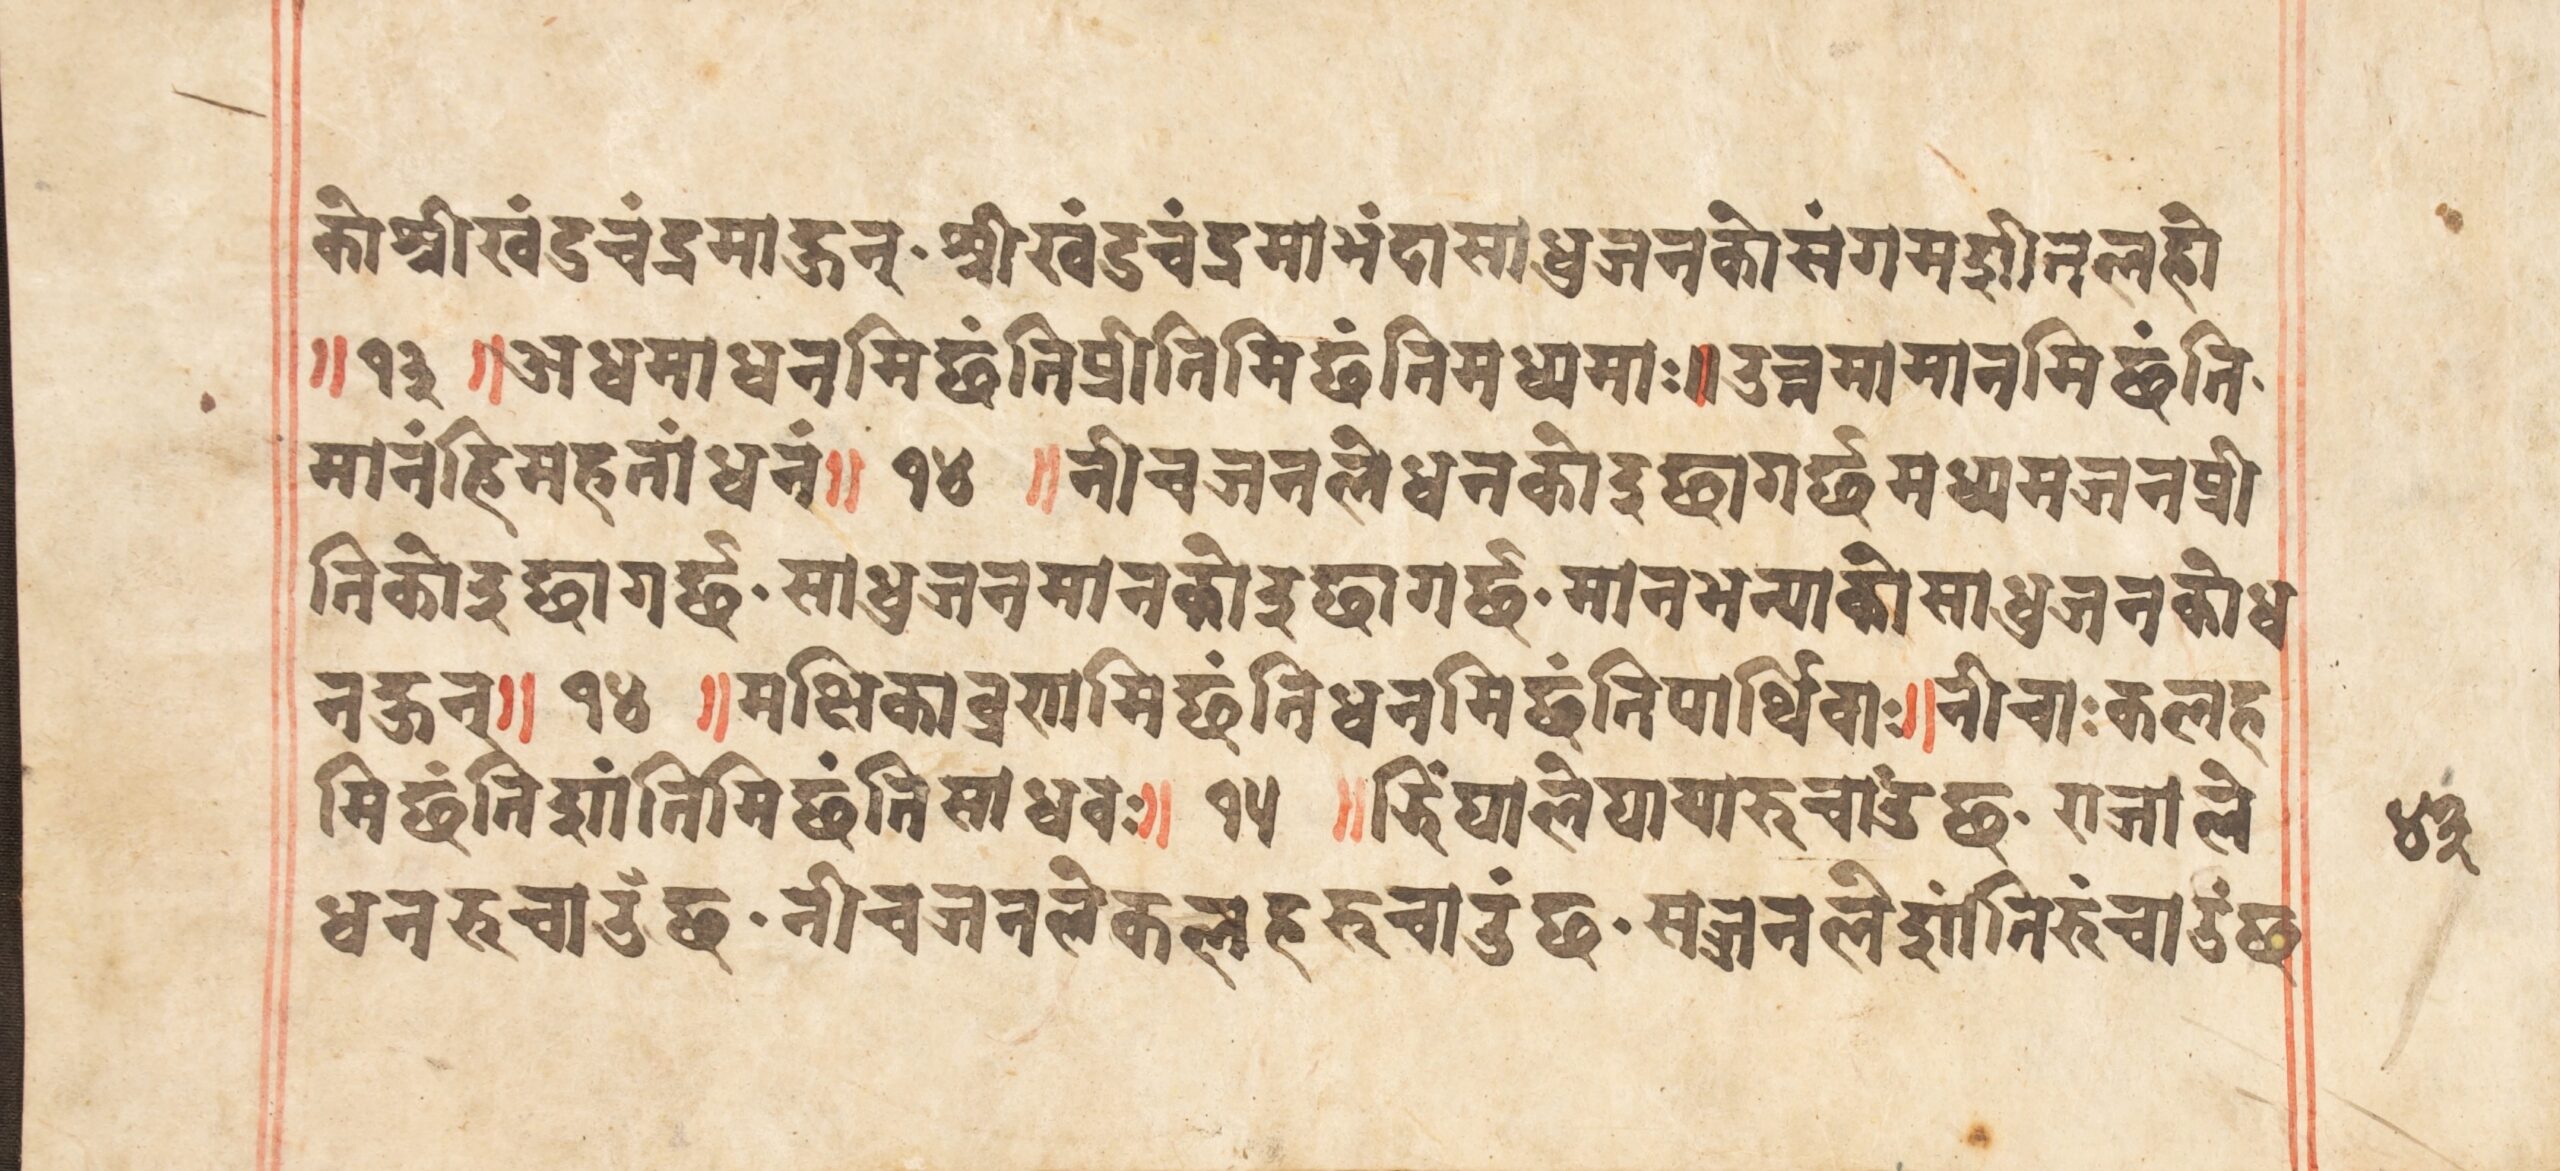 कोश्रीखंडचंद्रमाहुन्· श्रीखंडचंद्रमाभंदासाधुजनकोसंगमशीतलहो
॥१३ ॥अधमाधनमिछंतिप्रीतिमिछंतिमध्यमाः॥उत्तमामानमिछंति·
मानंहिमहतांधनं॥ १४ ॥नीचजनलेधनकोइछागर्छमध्यमजनप्री
तिकोइछागर्छ· साधुजनमानकोइछागर्छ· मानभन्याकोसाधुजनकोध
नहुन्॥ १४ ॥मक्षिकाव्रणमिछंतिधनमिछंतिपार्थिवाः॥नीचाःकलह
मिछंतिशांतिमिछंतिसाधवः॥ १५ ॥झिंघालेघायारुचाउंछ· राजाले
धनरुचाउंछ· नीचजनलेकलहरुचाउंछ· सज्जनलेशांतिरुंचाउंछ
४३